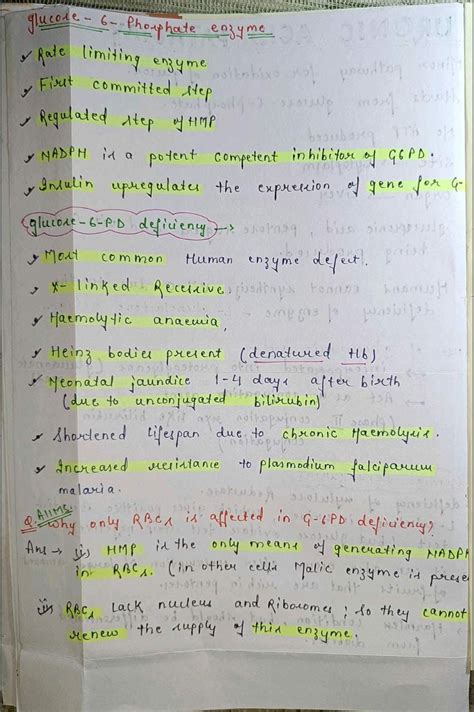 glucose - 6 - Phosphate enzyme
✓ Rate limiting enzyme
✓ First committed step
✓ Regulated step of HMP
✓ NADPH is a potent competent inhibitor of G6PD.
✓ Insulin upregulates the expression of gene for G-
glucose-6-PD deficiency →
✓ Most common Human enzyme defect.
✓ X-linked Recessive.
✓ Haemolytic anaemia,
✓ Heinz bodies present (denatured Hb)
✓ Neonatal jaundice 1-4 days after birth
(due to unconjugated bilirubin)
✓ Shortened lifespan due to chronic Haemolysis.
✓ Increased resistance to plasmodium falciparum
malaria.
AIIMS
Q. Why only RBCs is affected in G-6PD deficiency?
Ans → i) HMP is the only means of generating NADPH
in RBCs. (in other cells Malic enzyme is presen
ii) RBCs Lack nucleus and Ribosomes ; so they cannot
renew the supply of this enzyme.